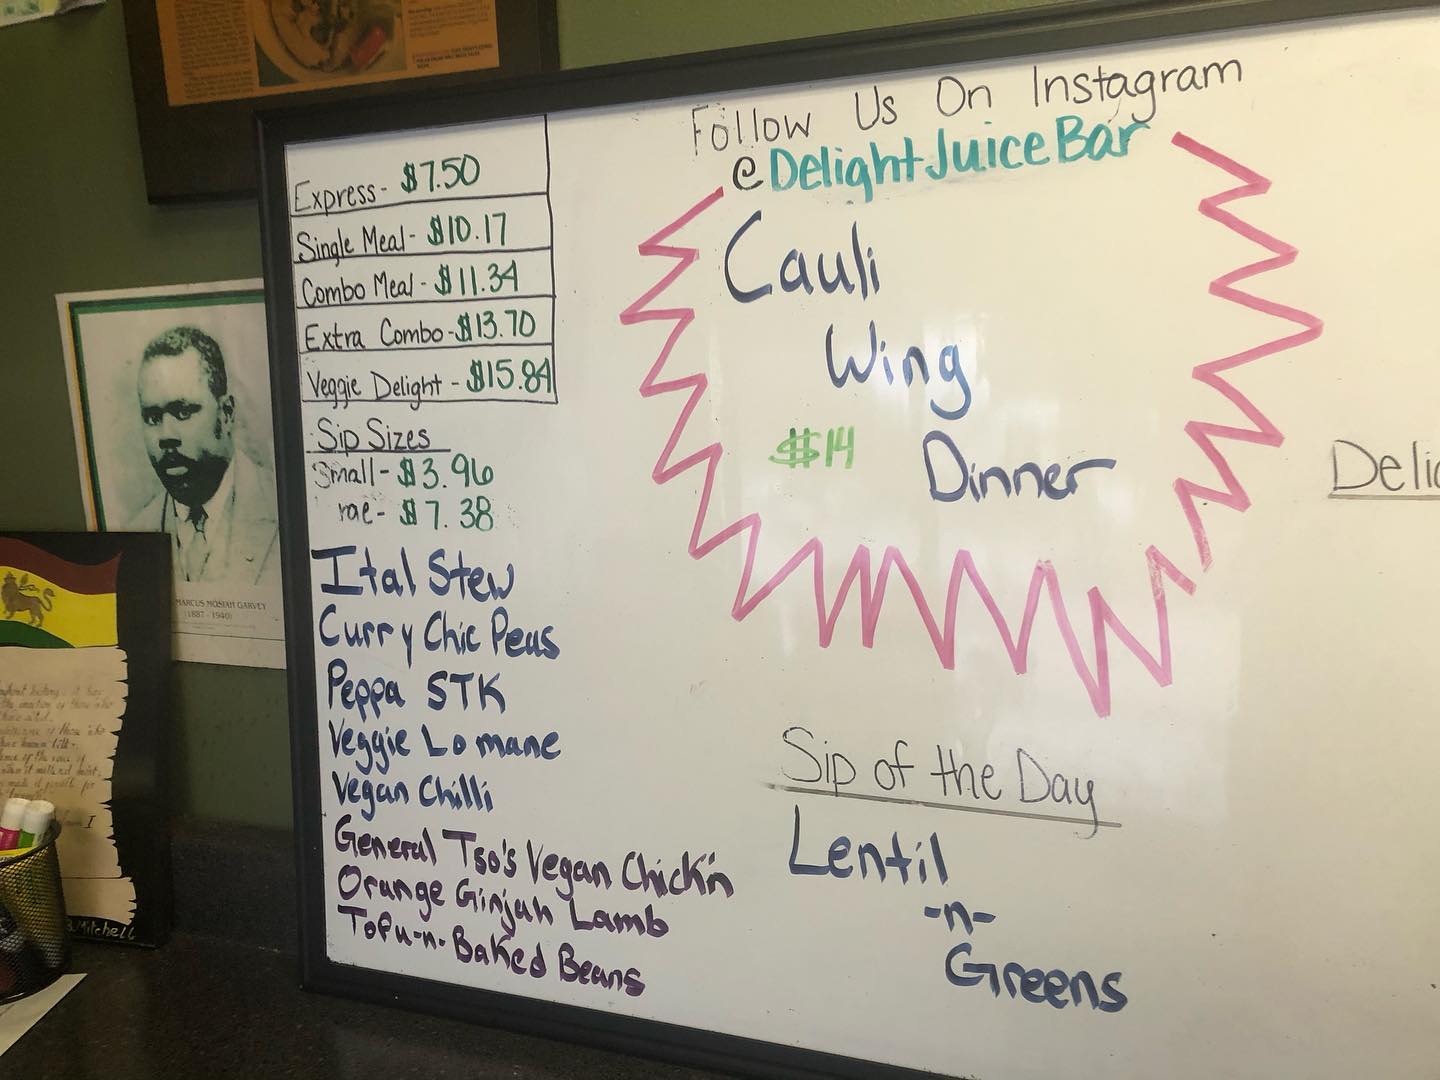 Follow Us On Instagram
@DelightJuiceBar
Express- $7.50
Single Meal- $10.17
Combo Meal- $11.34
Extra Combo-$13.70
Veggie Delight - $15.84
Sip Sizes
Small-$3.96
rae- $7.38
Ital Stew
Curry Chic Peas
Peppa STK
Veggie Lo mane
Vegan Chilli
General Tso's Vegan Chick'n
Orange Ginjah Lamb
Tofu-n-Baked Beans
Cauli
Wing
$14 Dinner
Sip of the Day
Lentil
-n-
Greens
Delic
MARCUS MOSIAH GARVEY
(1887 - 1940)
Mitchell